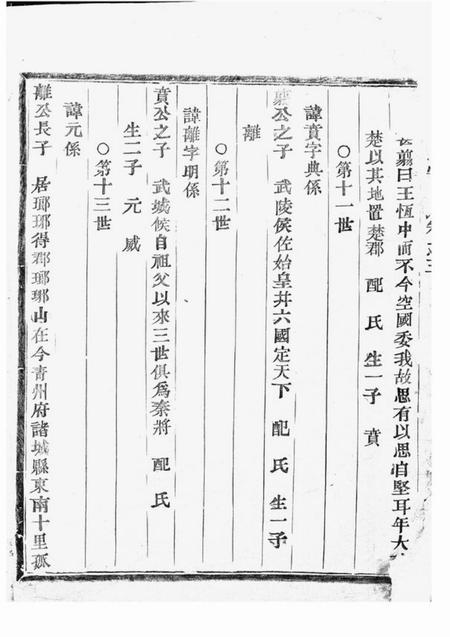 翦曰王恆中而不今空國委我故思有以思自堅耳年大
楚以其地置楚郡 配 氏 生一子 賁
○第十一世
諱賁字典係
翦公之子 武陵侯佐始皇并六國定天下 配 氏 生一子
離
○第十二世
諱離字明係
賁公之子 武城侯自祖父以來三世俱為秦將 配 氏
生二子 元 威
○第十三世
諱元係
離公長子 居瑯琊得郡瑯琊山在今青州府諸城縣東南十里孤